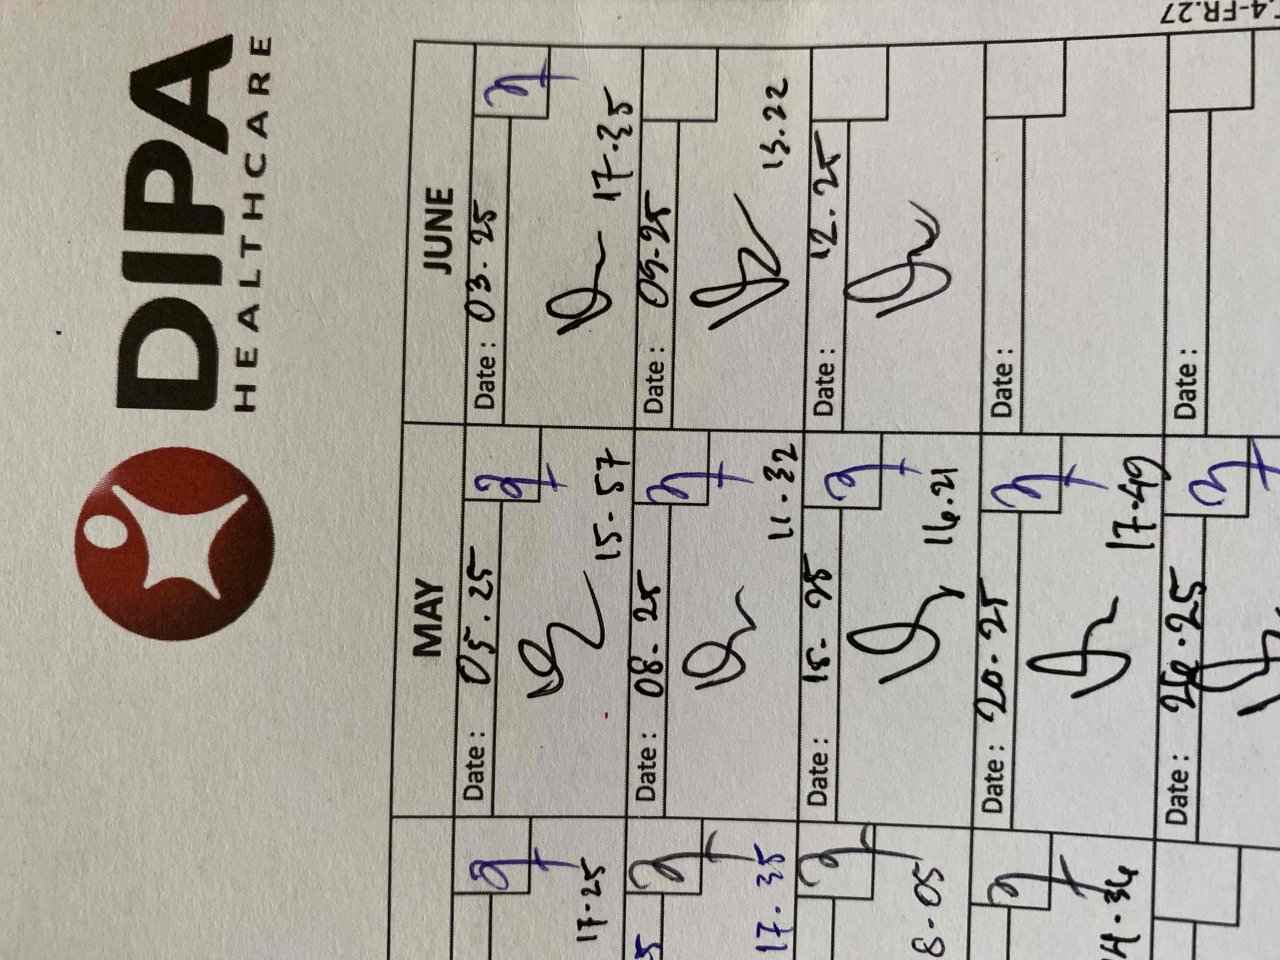 DIPA
HEALTHCARE
4-FR.27
MAY
JUNE
17.25
Date : 05.25
15.57
Date : 03.25
17.35
17.35
Date : 08.25
11.32
Date : 09.25
13.22
8.05
Date : 15.25
16.21
Date : 12.25
14.36
Date : 20.25
17.49
Date :
Date : 26.25
Date :